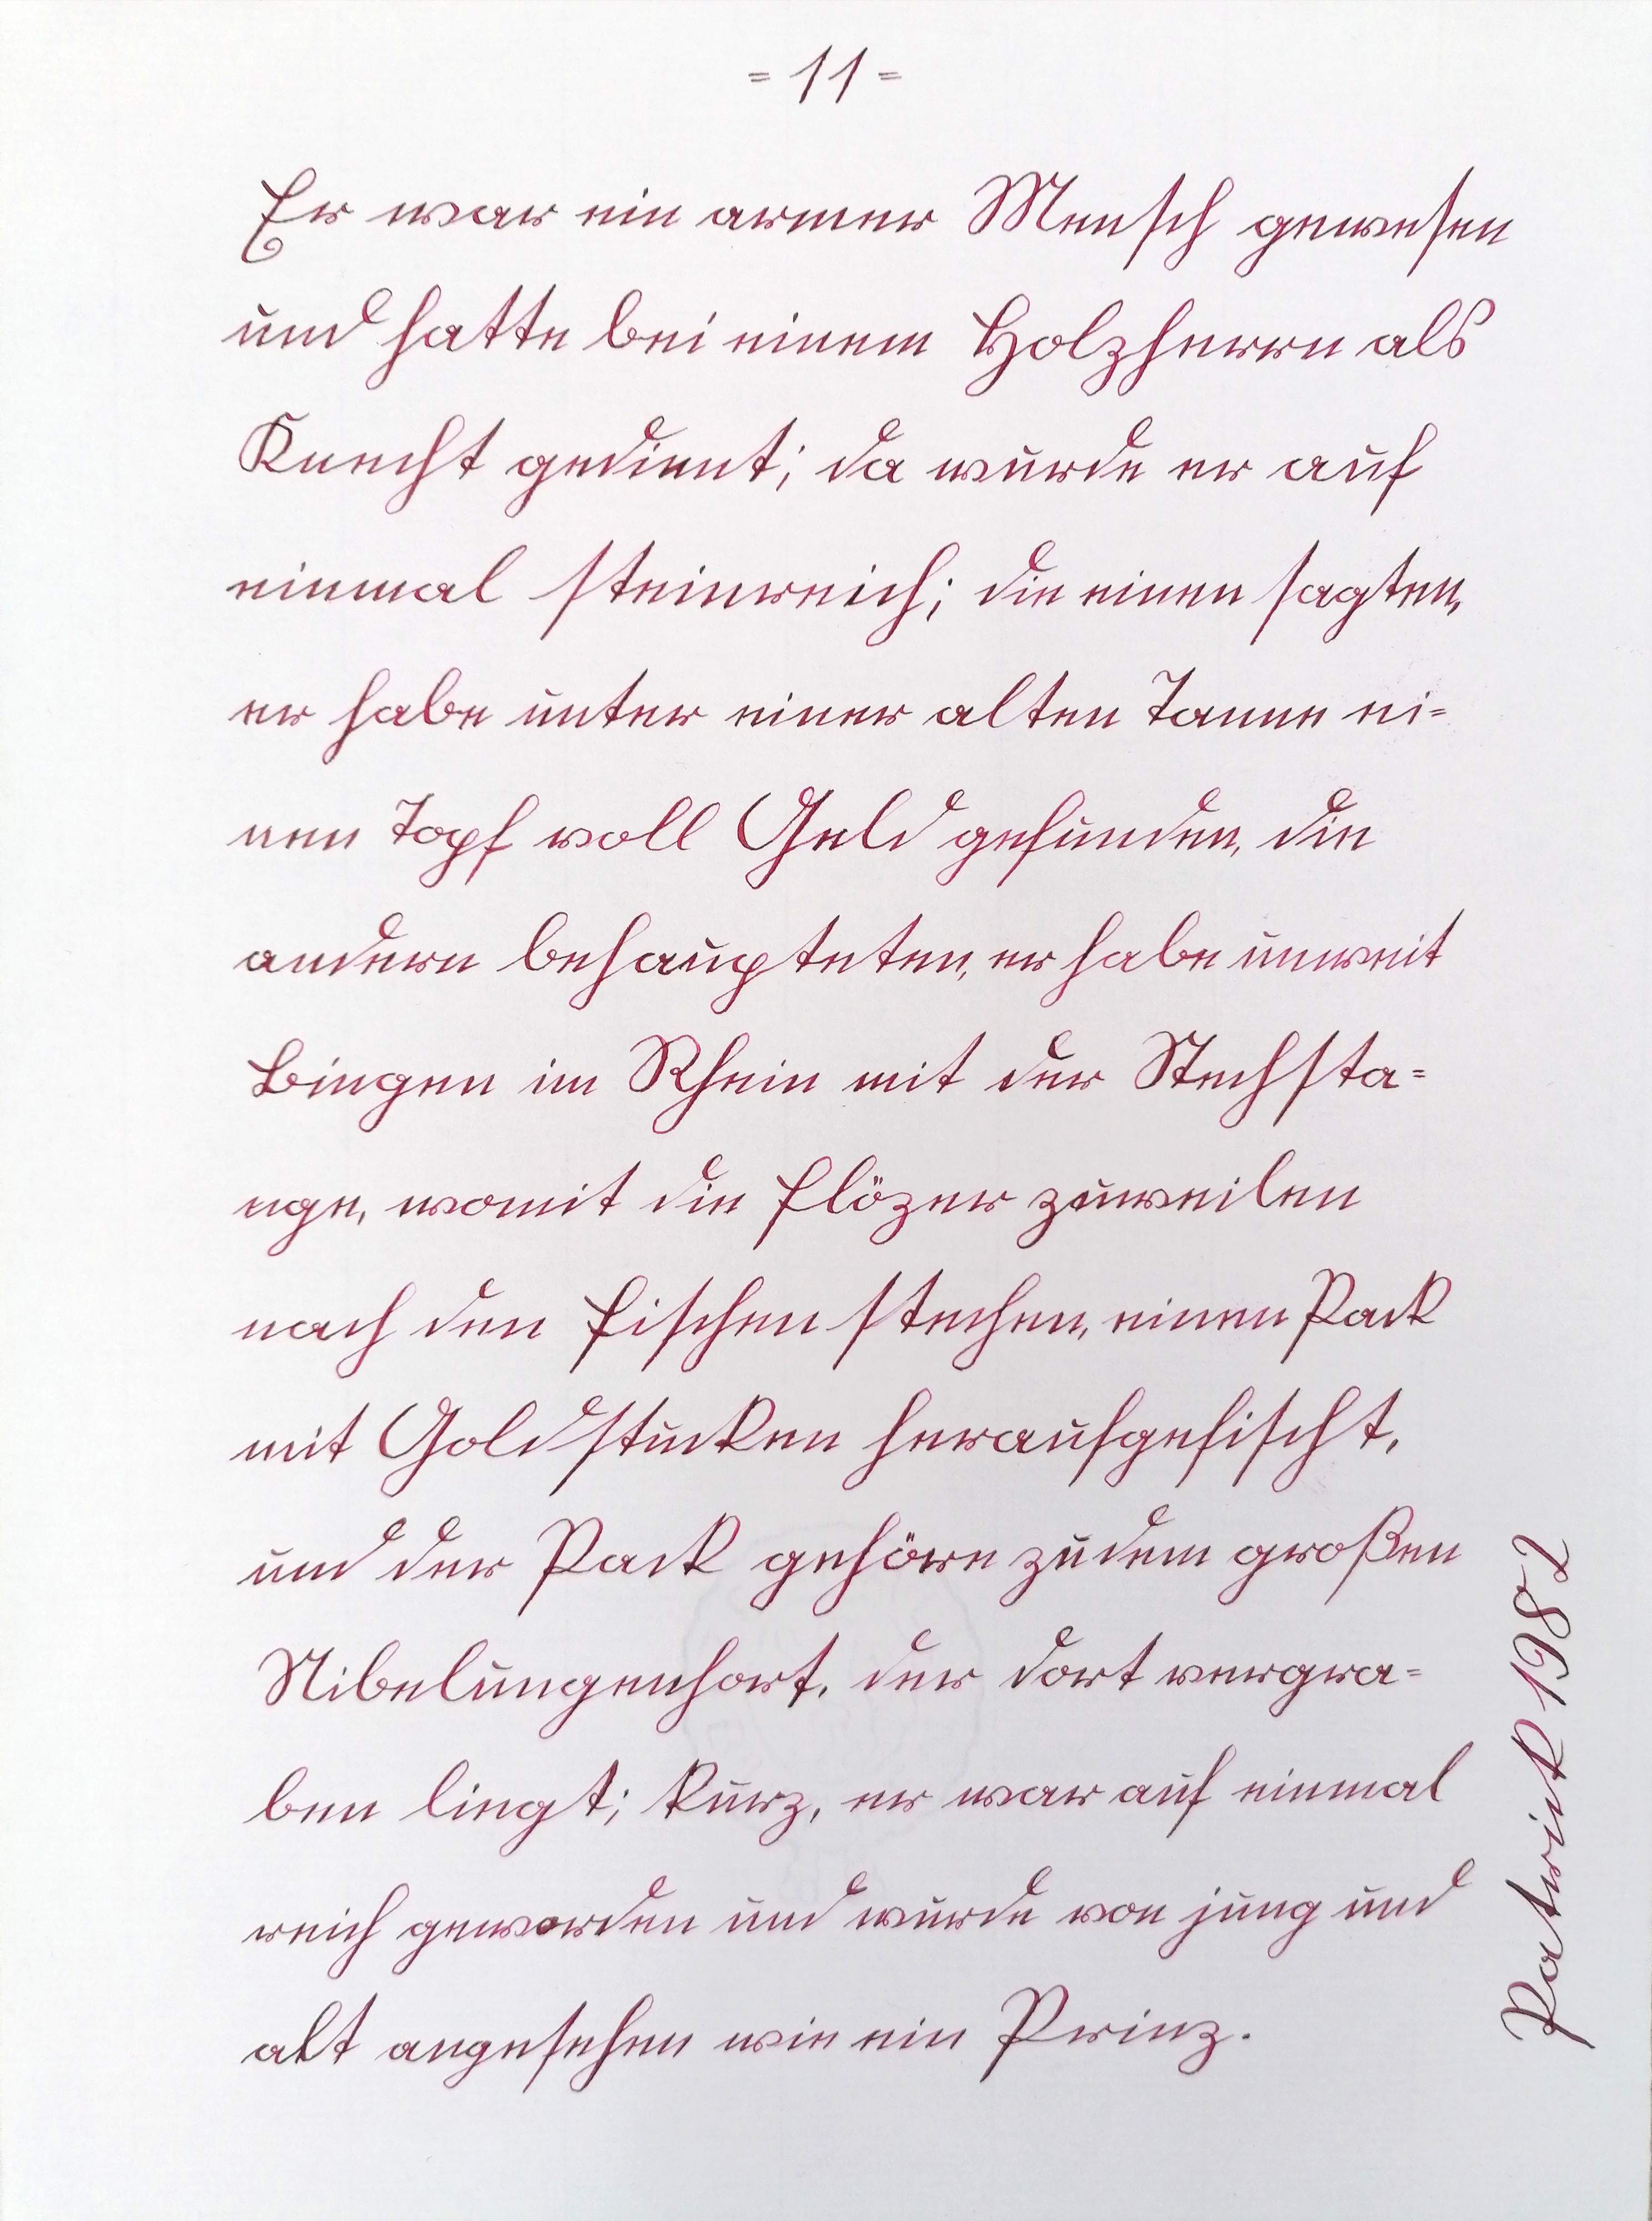 = 11 =
Er war ein armer Mensch gewesen
und hatte bei einem Holzherrn als
Knecht gedient; da wurde er auf
einmal steinreich; die einen sagten,
er habe unter einer alten Tanne ei=
nen Topf voll Geld gefunden, die
andern behaupteten, er habe unweit
Bingen im Rhein mit der Stechsta=
nge, womit die Flözer zuweilen
nach den Fischen stechen, einen Pack
mit Goldstücken heraufgefischt,
und der Pack gehöre zu dem großen
Nibelungenhort, der dort vergra=
ben liegt; kurz, er war auf einmal
reich geworden und wurde von jung und
alt angesehen wie ein Prinz.
Patrick 1982